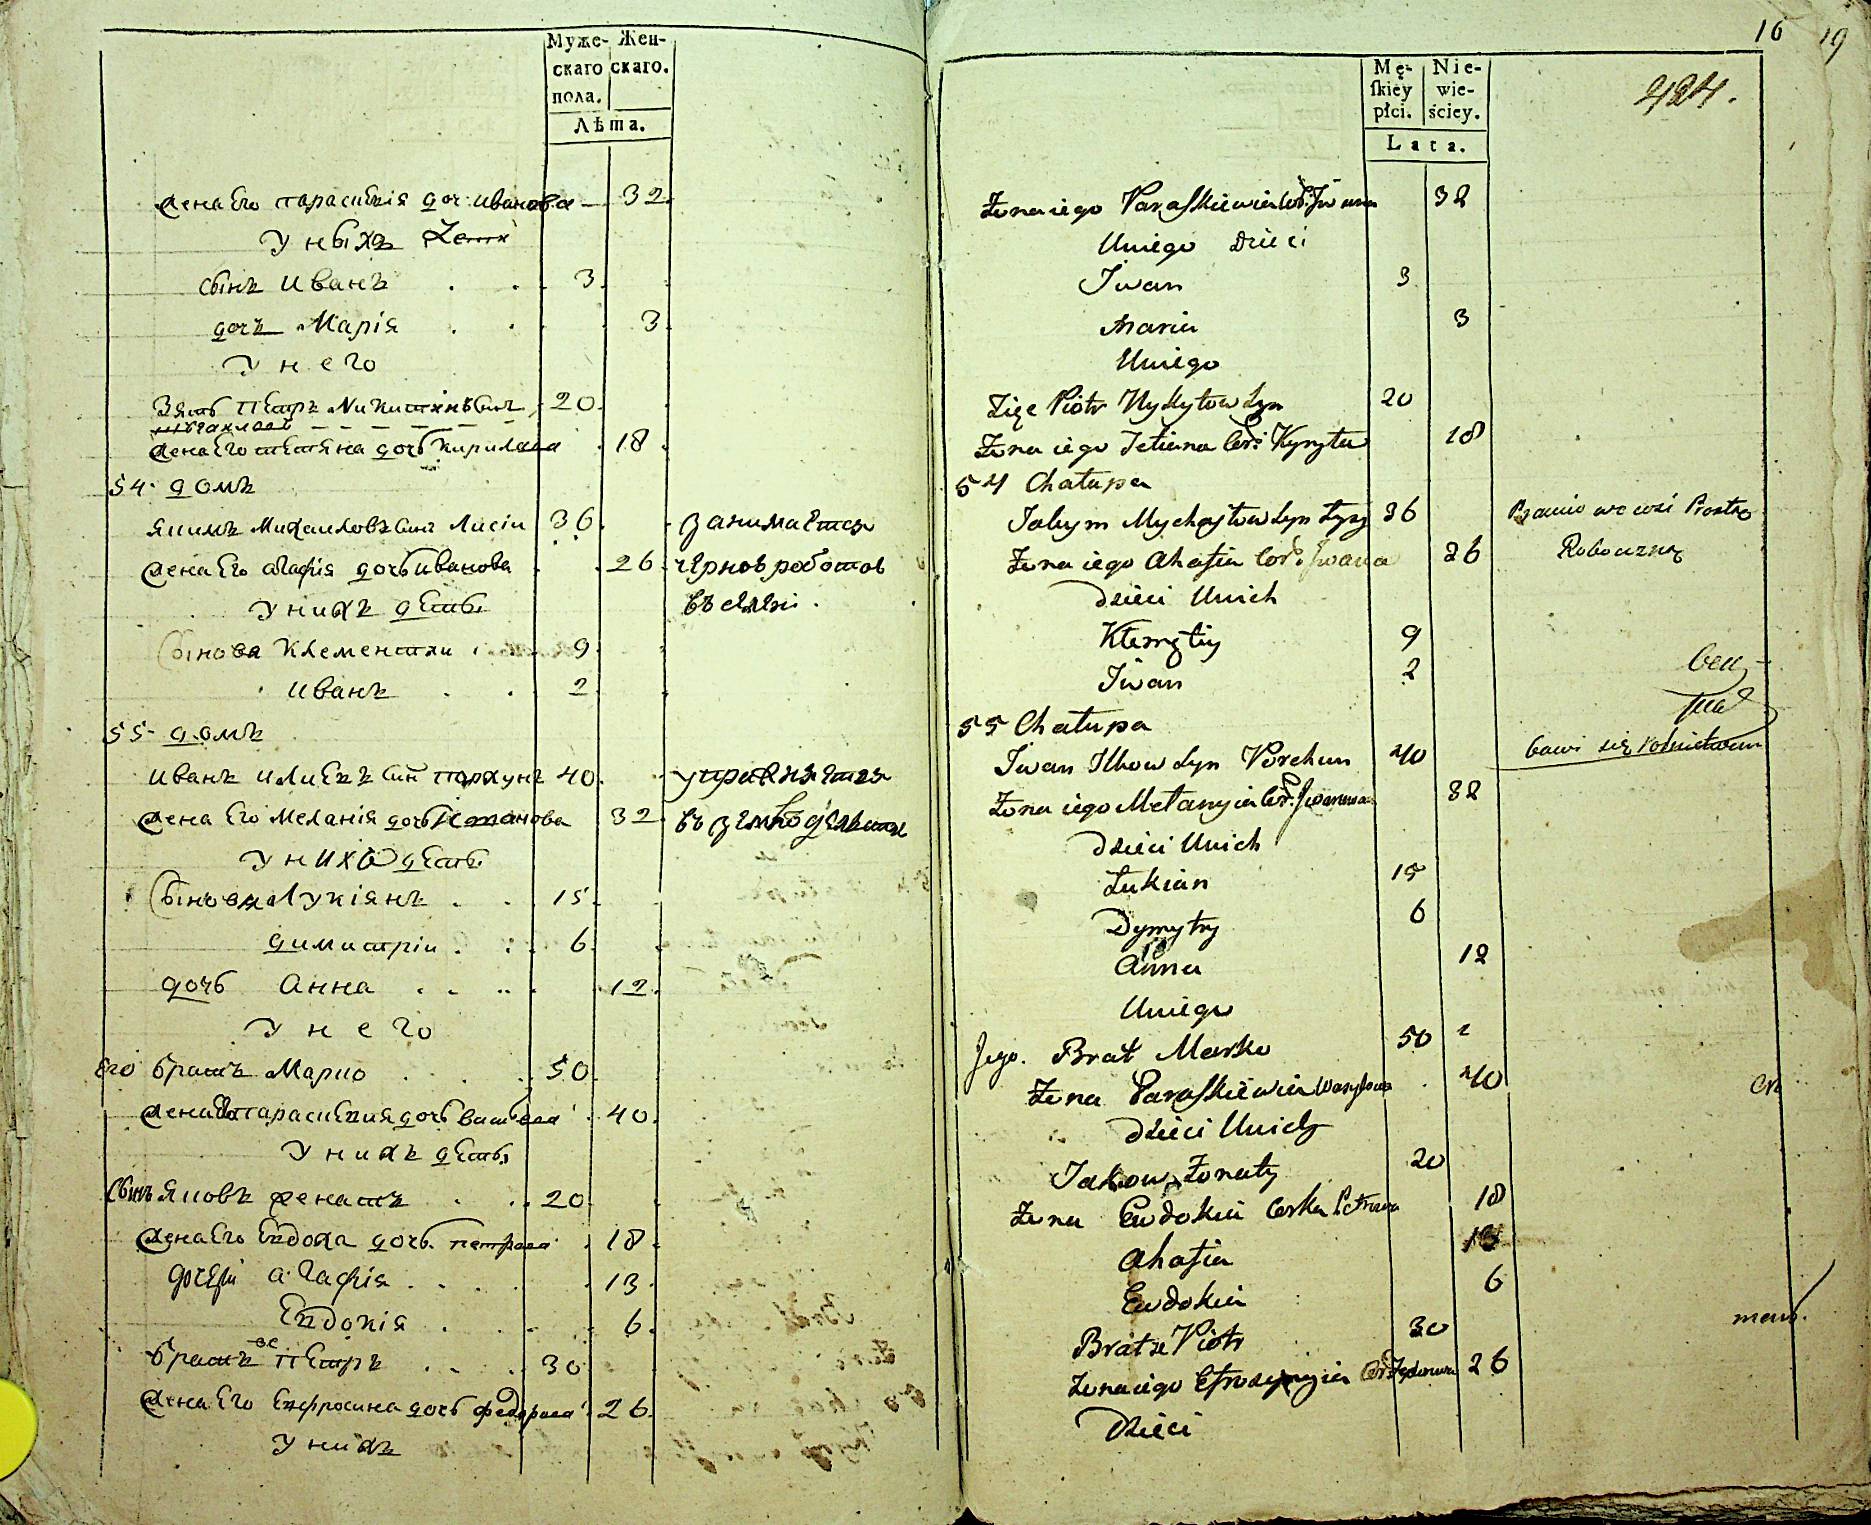 Муже- Жен-
скаго скаго.
пола.
Лѣта.
жена Его параскевія доч: иванова 32
У ныхъ
сынъ иванъ 3
дочъ Марія 3
У него
Зять Петръ Никитинъ сынъ 20
жена Его тетяна дочь кирилова 18
54. домъ
якимъ Михаиловъ сынъ Лисіи 36 занимается
жена Его агафія дочь иванова 26 чорною роботою
У нихъ дѣти въ селѣ.
Сынова Клементии 9
иванъ 2
55. домъ
иванъ илиевъ сынъ порхунъ 40 упражняется
жена Его Меланія дочь 32 въ земледѣльствѣ
У нихъ дѣти
Сыновя Лукіянъ 15
димитріи 6
дочь Анна 12
У него
Его братъ Марко 50
жена параскевия дочь 40
У нихъ дѣти
Сынъ яковъ женатъ 20
жена Его Евдоха дочь петрова 18
дочери агафія 13
Евдокія 6
братъ же петръ 30
жена Его Ефросина дочь федорова 26
У нихъ
16 19
Mę- Nie-
ſkiey wie-
płci. ściey.
Lata.
424.
Żona iego Paraſkiewia Cor: Jwana 32
Uniego Dzieci
Jwan 3
Maria 3
Uniego
Zięc Piotr Nykytow Syn 20
Żona iego Tetiana Cor: Kyryła 18
54 Chałupa
Jakym Mychayłow Syn Łysy 36
Żona iego Ahafia Cor: Jwana 26 Roboczną
Dzieci Unich
Klemętiy 9
Jwan 2
55 Chałupa
Jwan Ilkow Syn Porchun 40 bawi się rolnictwem
Żona iego Mełanyia Cor: Jwanowa 32
Dzieci Unich
Łukian 15
Dymytry 6
Anna 12
Uniego
Jego Brat Marko 50
Żona Paraſkiewia Wasylowa 40
Dzieci Unich
Jakow Żonaty 20
Żona Ewdokia Corka Petrowa 18
Ahafia 13
Ewdokia 6
Bratże Piotr 30
Żona iego Efrozynyia Cor: Fedorowa 26
Dzieci